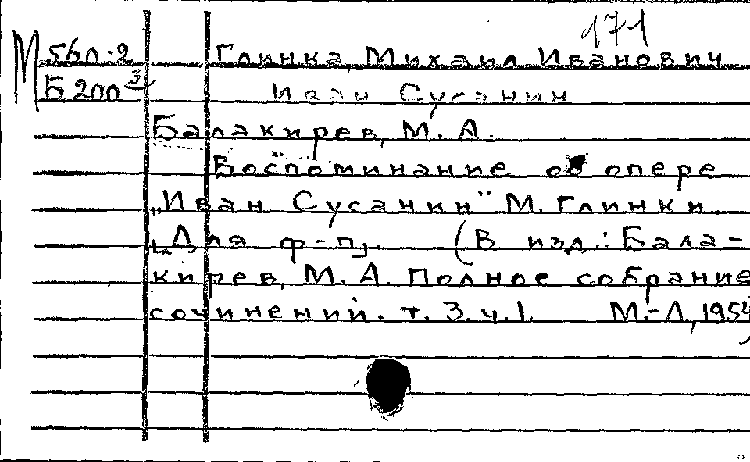 171
М 56л.2 Глинка, Михаил Иванович
Б 200³ Иван Сусанин
Балакирев, М. А.
Воспоминание об опере
„Иван Сусанин" М. Глинки
[Для ф-п]. (В изд.: Бала-
кирев, М. А. Полное собрание
сочинений. т. 3. ч. 1. М.-Л, 1954